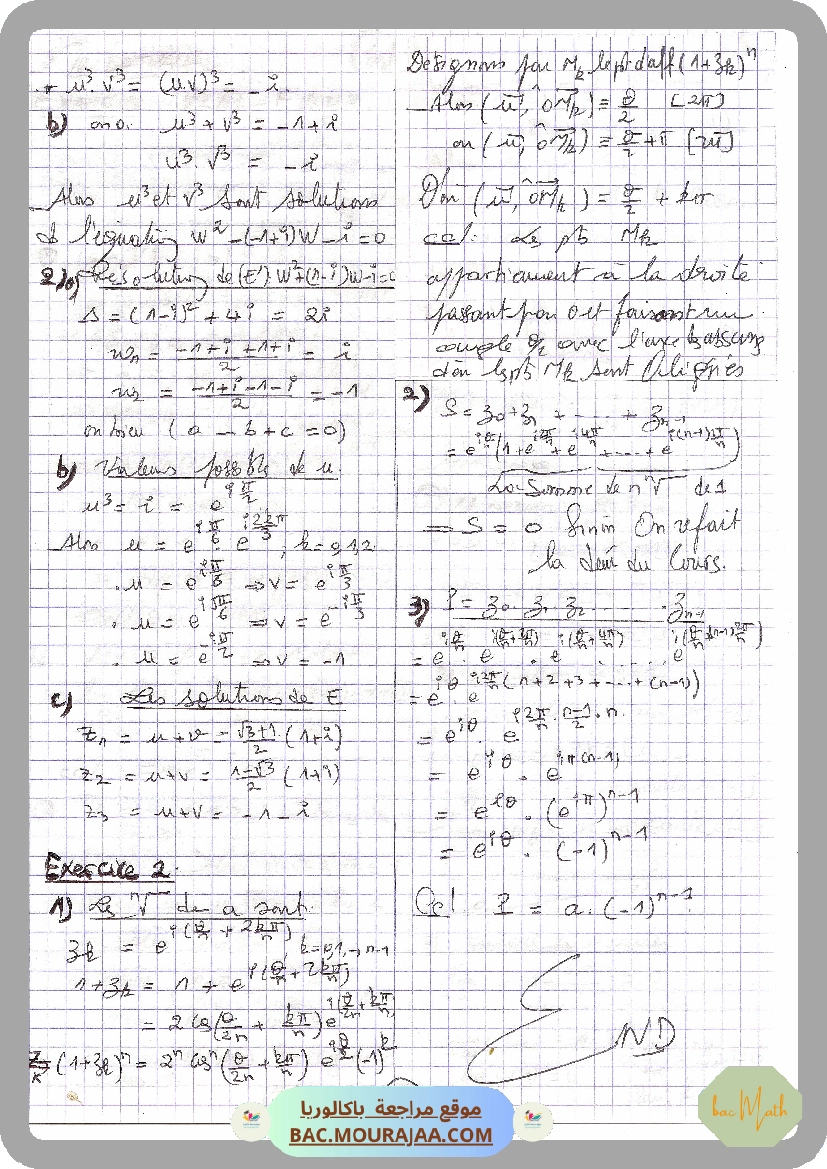 * u³.v³ = (u.v)³ = -i
b) on a. u³ + v³ = -1+i
u³.v³ = -i
Alors u³ et v³ sont solutions
d l'équation W² - (-1+i)W - i = 0
2)a) Résolution de (E'): W²+(1-i)W-i=0
Δ = (1-i)² + 4i = 2i
w₁ = (-1+i+1+i)/2 = i
w₂ = (-1+i-1-i)/2 = -1
ou bien (a - b + c = 0)
b) Valeurs possible de u.
u³ = i = e^{iπ/2}
Alors u = e^{iπ/6} . e^{i2kπ/3} ; k = 0,1,2
. u = e^{iπ/6} ⇒ v = e^{iπ/3}
. u = e^{i5π/6} ⇒ v = e^{-iπ/3}
. u = e^{-iπ/2} ⇒ v = -1
c) Les solutions de E
z₁ = u+v = (√3+1)/2 . (1+i)
z₂ = u+v = (1-√3)/2 (1+i)
z₃ = u+v = -1-i
Exercice 2.
1) Les ⁿ√ de a sont.
z_k = e^{i(θ/n + 2kπ/n)}, k=0,1,..,n-1
1+z_k = 1 + e^{i(θ/n + 2kπ/n)}
= 2 cos(θ/2n + kπ/n) e^{i(θ/2n + kπ/n)}
(1+z_k)ⁿ = 2ⁿ cosⁿ(θ/2n + kπ/n) e^{iθ/2} (-1)^k
Désignons par M_k le pt d'aff (1+z_k)ⁿ
Alors (u, OM_k) ≡ θ/2 [2π]
ou (u, OM_k) ≡ θ/2 + π [2π]
D'où (u, OM_k) = θ/2 + kπ
ccl: Les pts M_k
appartiennent à la droite
passant par O et faisant un
angle θ/2 avec l'axe des abscisses
d'où les pts M_k sont alignés
2) S = z₀ + z₁ + ..... + z_{n-1}
= e^{iθ/n}(1 + e^{i2π/n} + e^{i4π/n} + ..... + e^{i(n-1)2π/n})
La somme de n ⁿ√ de 1
⇒ S = 0 Sinon On refait
la dém du Cours.
3) P = z₀ . z₁ . z₂ ....... z_{n-1}
= e^{iθ/n} . e^{i(θ/n+2π/n)} . e^{i(θ/n+4π/n)} ..... e^{i(θ/n+(n-1)2π/n)}
= e^{iθ} . e^{i2π/n(1+2+3+....+(n-1))}
= e^{iθ} . e^{i2π/n . (n-1)/2 . n}
= e^{iθ} . e^{iπ(n-1)}
= e^{iθ} . (e^{iπ})^{n-1}
= e^{iθ} . (-1)^{n-1}
Ccl P = a . (-1)^{n-1}
END
موقع مراجعة باكالوريا
BAC.MOURAJAA.COM
bacMath